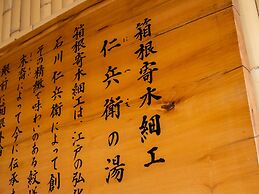 箱根寄木細工
仁兵衛の湯
箱根寄木細工は、江戸の弘
石川仁兵衛によって創
その精緻で味わいのある紋
末裔によって今に伝承